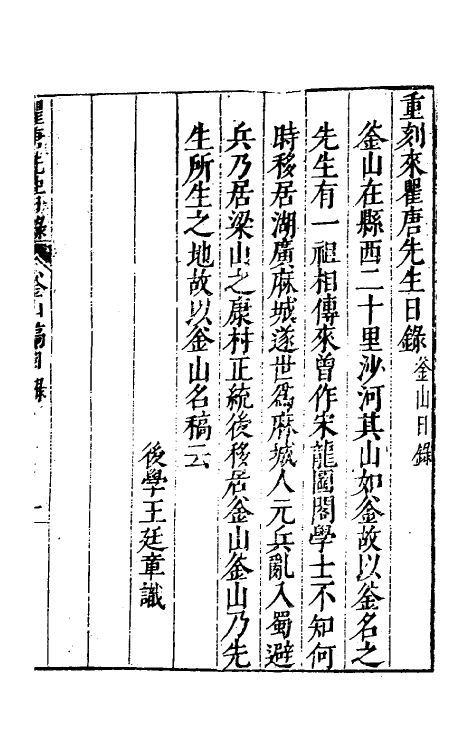 重刻來瞿唐先生日錄 釜山日錄
釜山在縣西二十里沙河其山如釜故以釜名之
先生有一祖相傳來曾作宋龍圖閣學士不知何
時移居湖廣麻城遂世爲麻城人元兵亂入蜀避
兵乃居梁山之康村正統後移居釜山釜山乃先
生所生之地故以釜山名稿云
後學王廷章識
瞿唐先生日錄 釜山稿目錄